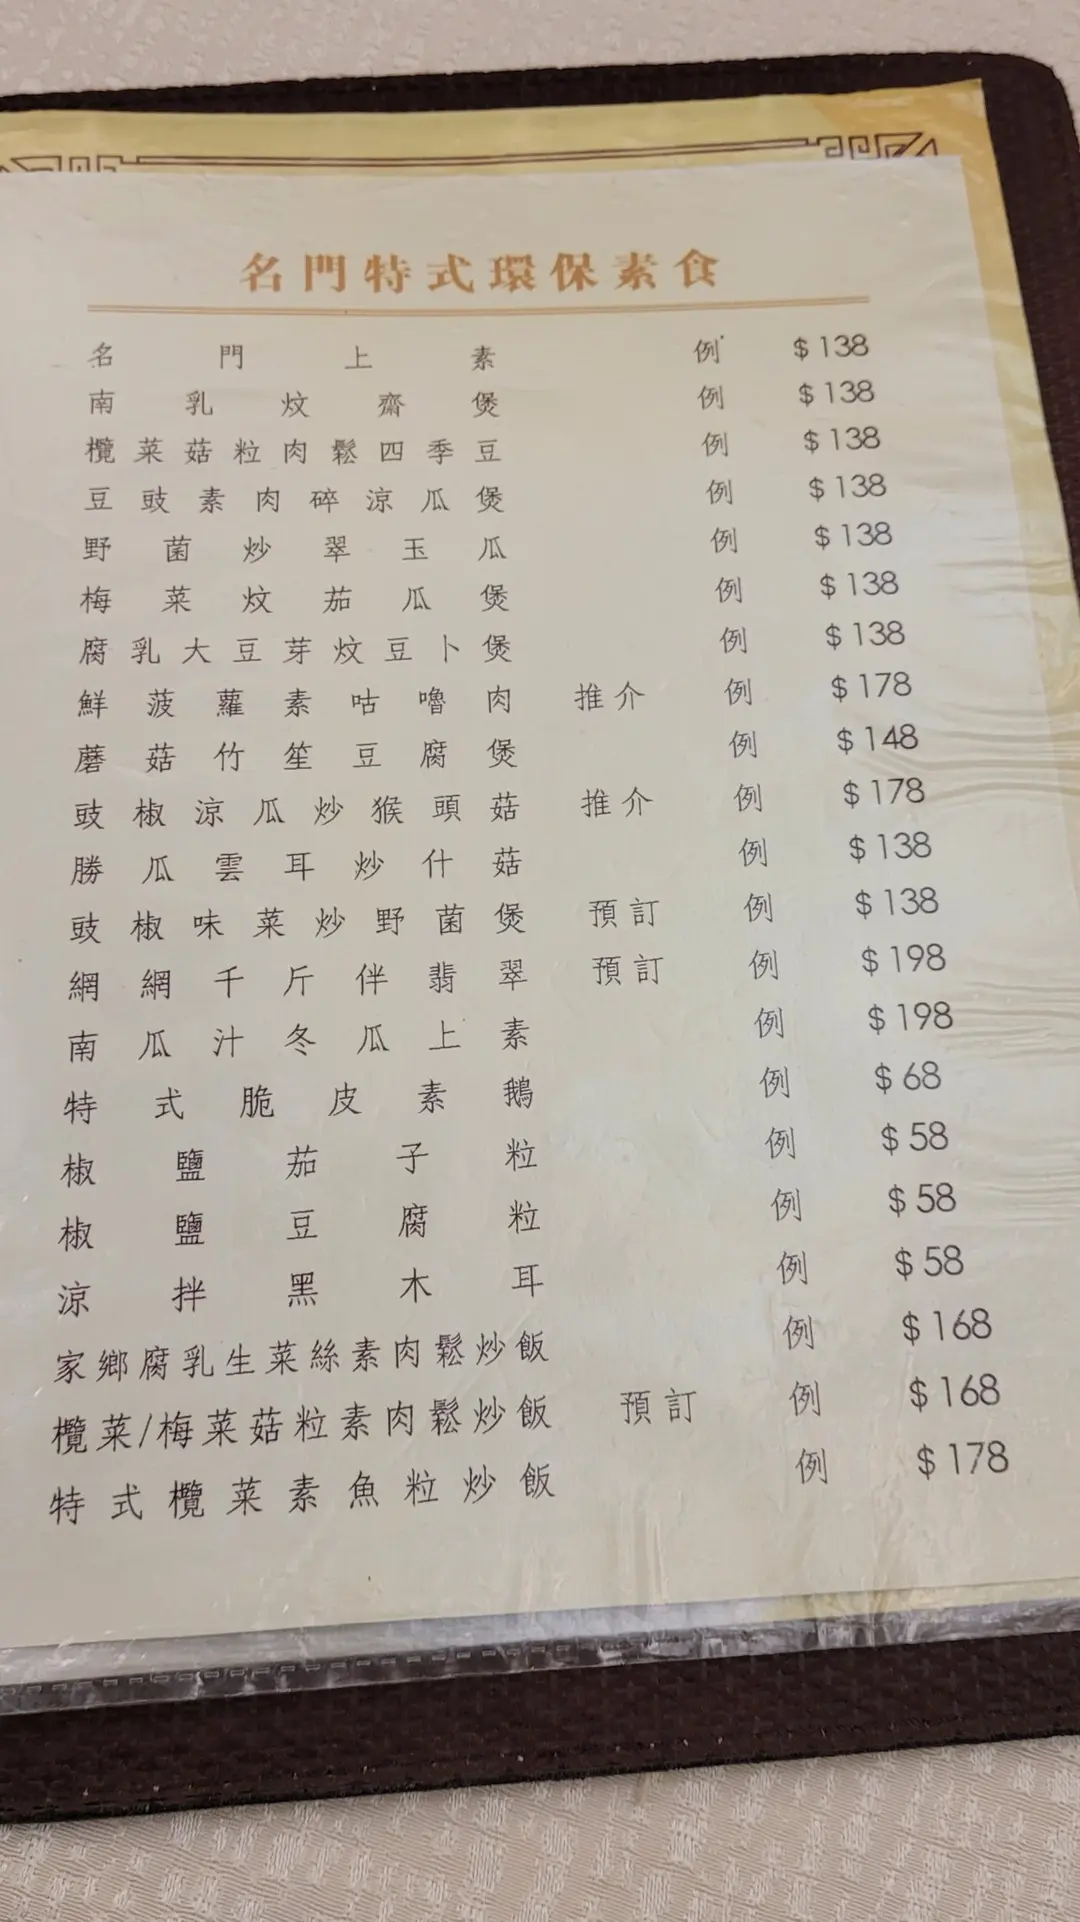 名門特式環保素食
名門上素 例 $138
南乳炆齋煲 例 $138
欖菜菇粒肉鬆四季豆 例 $138
豆豉素肉碎涼瓜煲 例 $138
野菌炒翠玉瓜 例 $138
梅菜炆茄瓜煲 例 $138
腐乳大豆芽炆豆卜煲 例 $138
鮮菠蘿素咕嚕肉 推介 例 $178
蘑菇竹笙豆腐煲 例 $148
豉椒涼瓜炒猴頭菇 推介 例 $178
勝瓜雲耳炒什菇 例 $138
豉椒味菜炒野菌煲 預訂 例 $138
網網千斤伴翡翠 預訂 例 $198
南瓜汁冬瓜上素 例 $198
特式脆皮素鵝 例 $68
椒鹽茄子粒 例 $58
椒鹽豆腐粒 例 $58
涼拌黑木耳 例 $58
家鄉腐乳生菜絲素肉鬆炒飯 例 $168
欖菜/梅菜菇粒素肉鬆炒飯 預訂 例 $168
特式欖菜素魚粒炒飯 例 $178